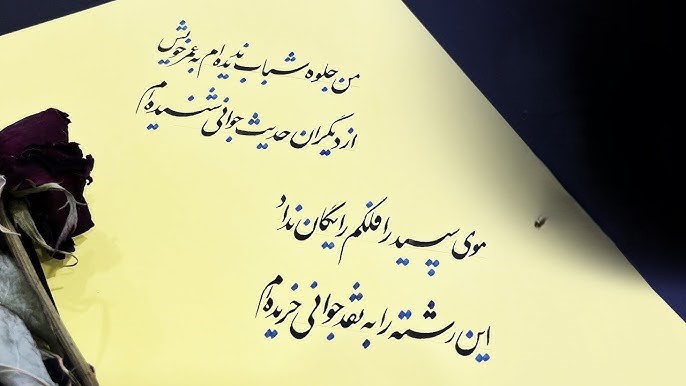 من جلوه شباب ندیده‌ام به عمر خویش
از دیگران حدیث جوانی شنیده‌ام
موی سپید را فلکم رایگان نداد
این رشته را به نقد جوانی خریده‌ام